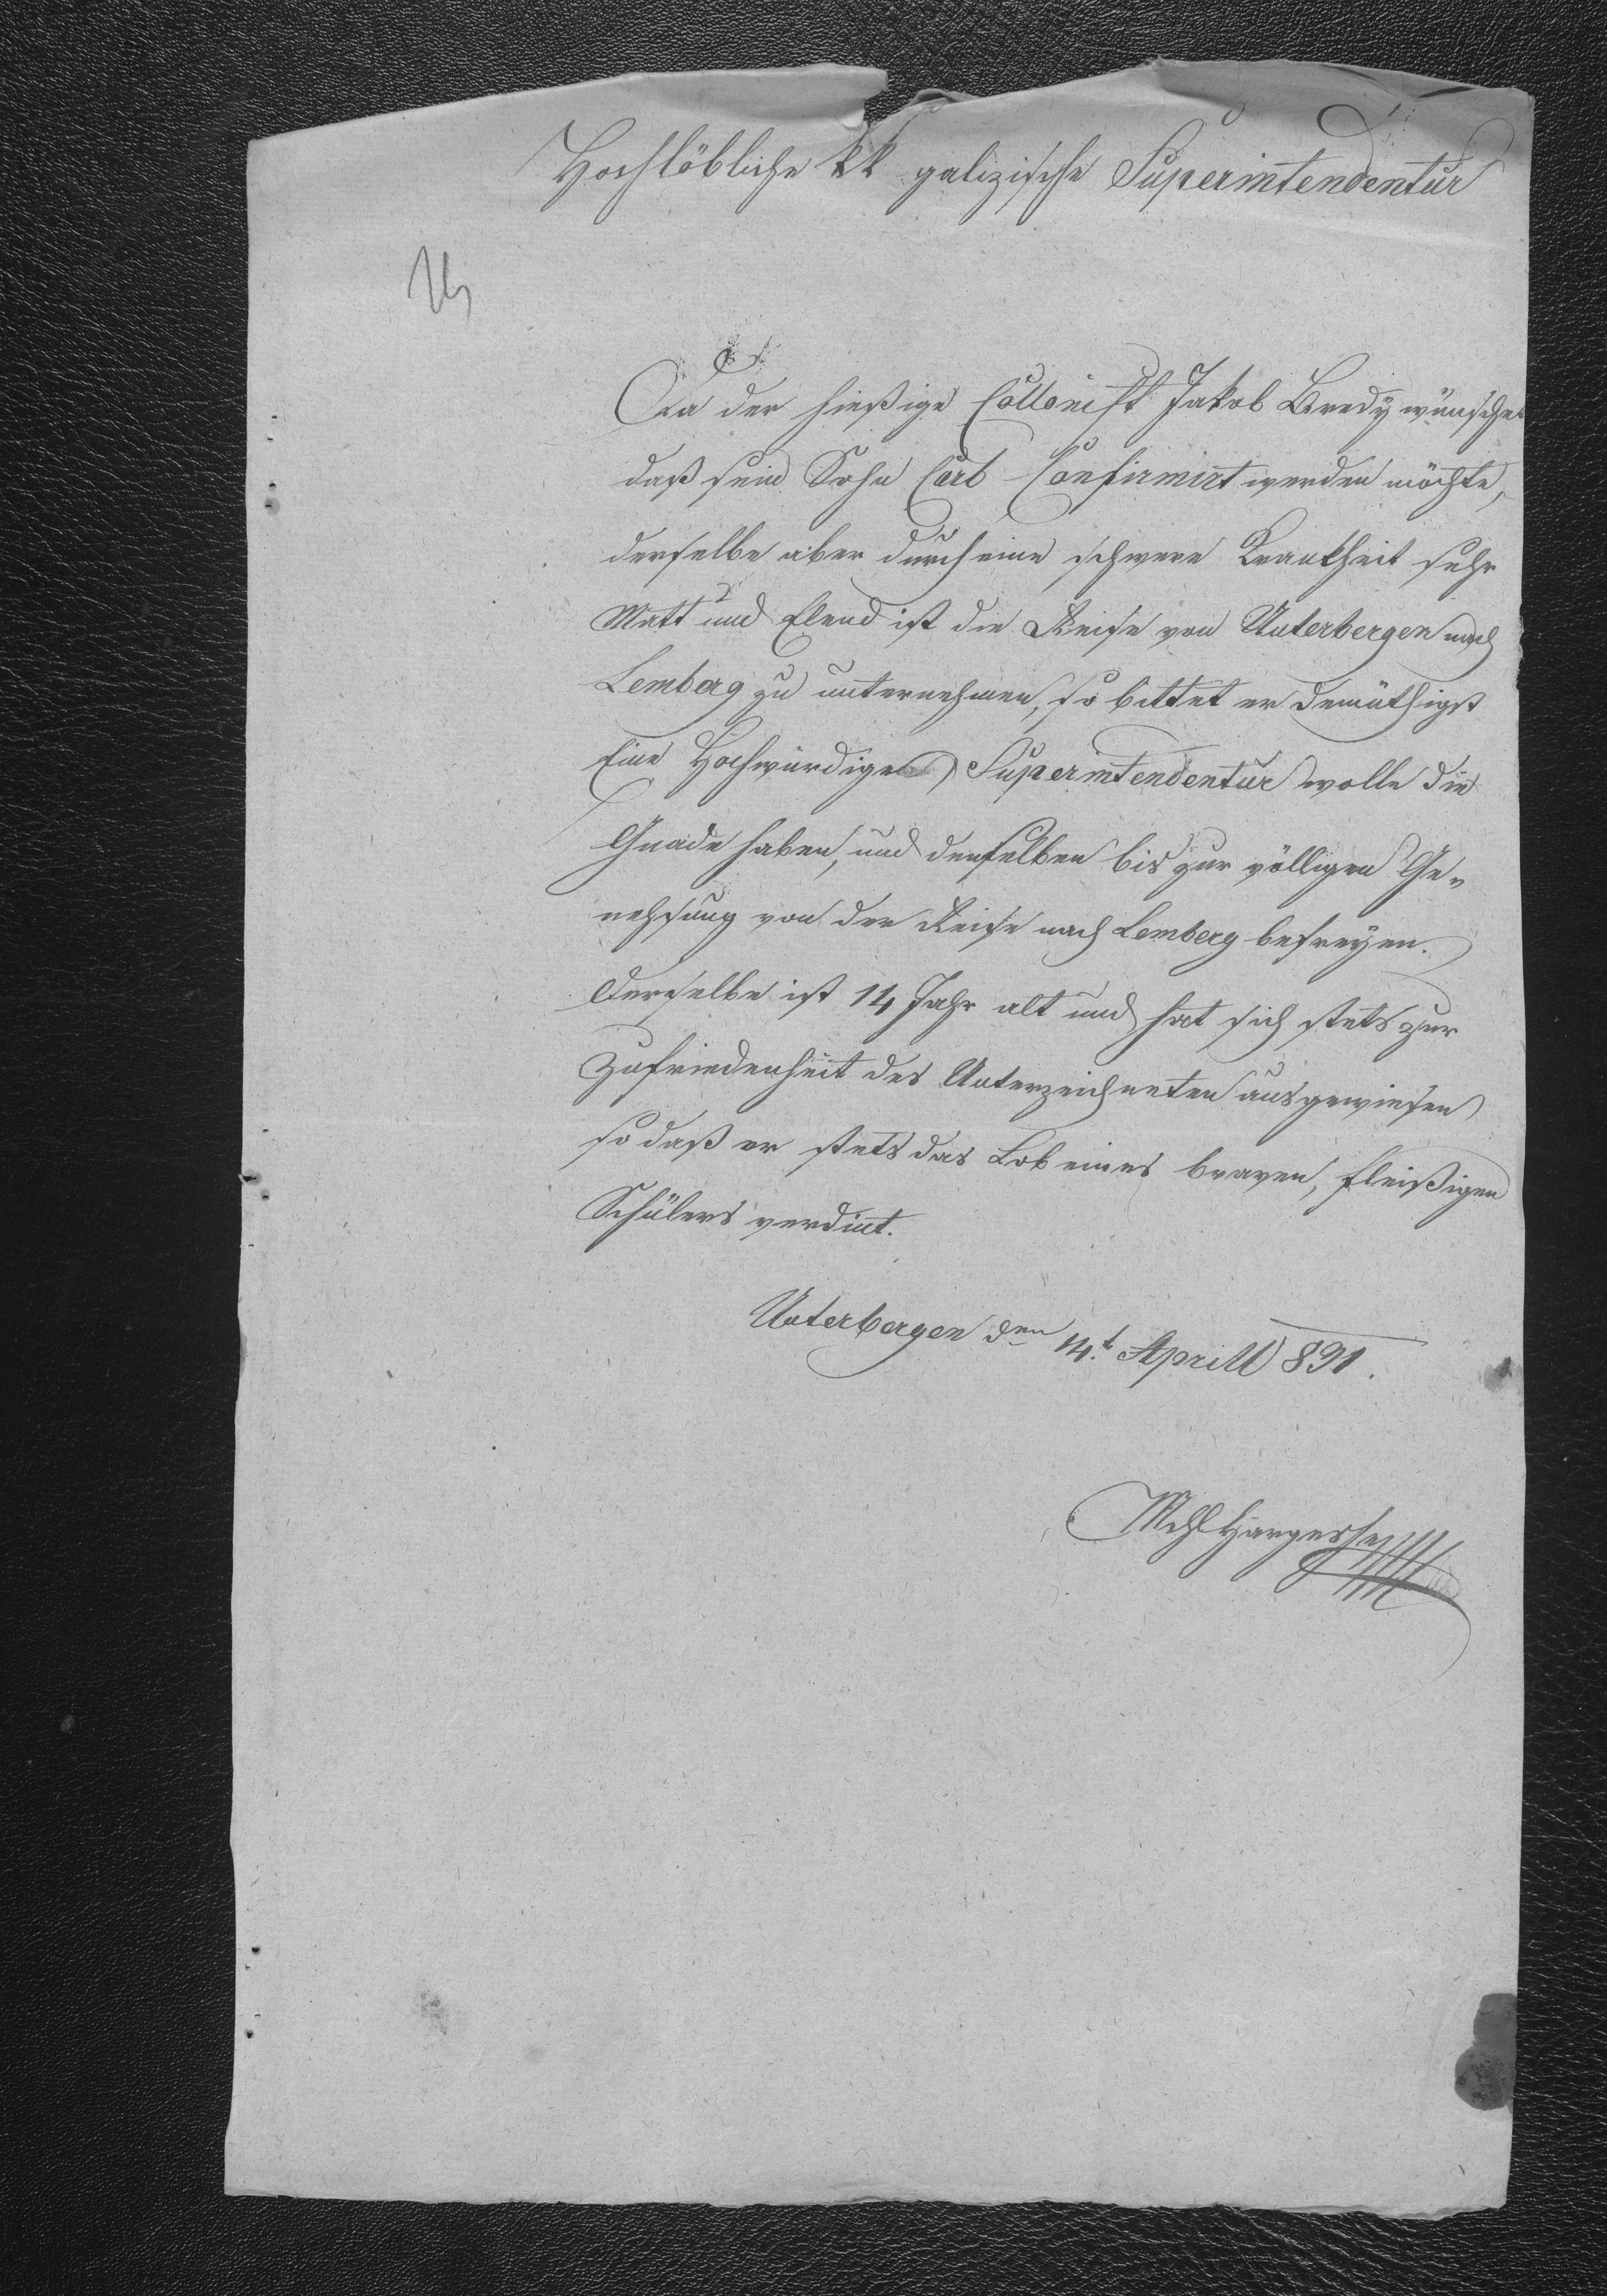 Hochlöbliche kk galizische Superintendentur
Da der hießige Collonist Jakob Bredÿ wünschet
daß sein Sohn Carl Confirmirt werden möchte,
derselbe aber durch eine schwere Krankheit sehr
Matt und Elend ist die Reise von Unterbergen nach
Lemberg zu unternehmen, so bittet er demüthigst
Eine Hochwürdige Superintendentur wolle die
Gnade haben, und denselben bis zur völligen Ge-
nehsung von der Reise nach Lemberg befreyen.
Derselbe ist 14 Jahr alt und hat sich stets zur
Zufriedenheit des Unterzeichneten ausgewiesen
so daß er stets das Lob eines braven, fleißigen
Schülers verdint.
Unterbergen den 14.t Aprill 891.